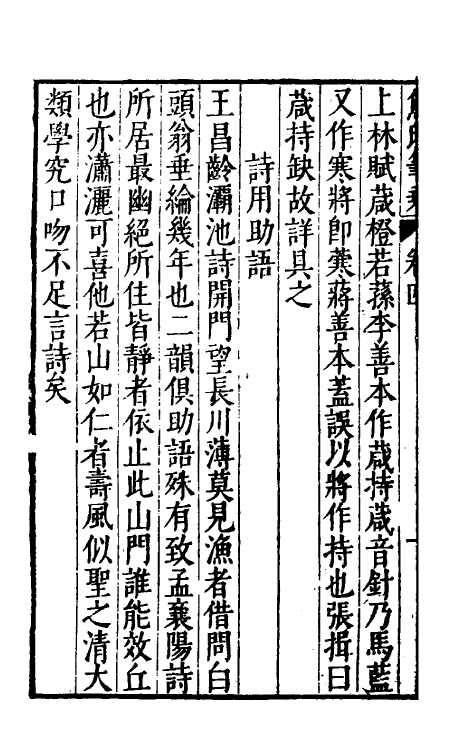 卷四
上林賦葴橙若蓀李善本作葴持葴音針乃馬藍
又作寒將卽藆蔣善本蓋誤以將作持也張揖曰
葴持缺故詳具之
詩用助語
王昌齡灞池詩開門望長川薄莫見漁者借問白
頭翁垂綸幾年也二韻俱助語殊有致孟襄陽詩
所居最幽絕所住皆靜者依止此山門誰能效丘
也亦瀟灑可喜他若山如仁者壽風似聖之清大
類學究口吻不足言詩矣